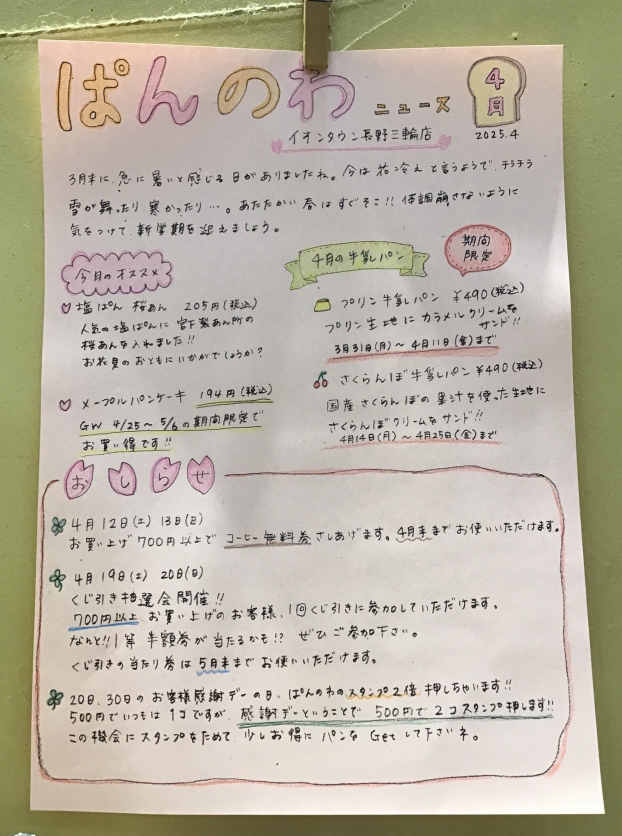 ぱんのわ ニュース
4月
イオンタウン長野三輪店
2025.4
3月末に、急に暑いと感じる日がありましたね。今は花冷えと言うようで、チラチラ
雪が舞ったり寒かったり…。あたたかい春はすぐそこ!!体調崩さないように
気をつけて、新学期を迎えましょう。
今月のオススメ
塩ぱん 桜あん 205円(税込)
人気の塩ぱんに宮下製あん所の
桜あんを入れました!!
お花見のおともにいかがでしょうか?
メープルパンケーキ 194円(税込)
GW 4/25〜5/6の期間限定で
お買い得です!!
4月の牛乳パン
期間
限定
プリン牛乳パン ¥490(税込)
プリン生地にカラメルクリームを
サンド!!
3月31日(月)〜4月11日(金)まで
さくらんぼ牛乳パン ¥490(税込)
国産さくらんぼの果汁を使った生地に
さくらんぼクリームをサンド!!
4月14日(月)〜4月25日(金)まで
おしらせ
4月12日(土) 13日(日)
お買い上げ700円以上で コーヒー無料券さしあげます。4月末までお使いいただけます。
4月19日(土) 20日(日)
くじ引き抽選会開催!!
700円以上、お買い上げのお客様、1回くじ引きに参加していただけます。
なんと!!1等 半額券が当たるかも!? ぜひご参加下さい。
くじ引きの当たり券は5月末までお使いいただけます。
20日、30日のお客様感謝デーの日、ぱんのわのスタンプ2倍押しちゃいます!!
500円でいつもは1コですが、感謝デーということで 500円で2コスタンプ押します!!
この機会にスタンプをためて、少しお得にパンをGetして下さいネ。